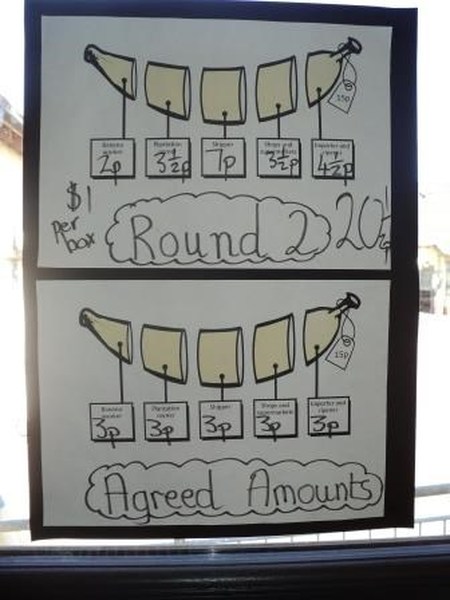 15p
Banana worker
2p
Plantation owner
3½p
Shipper
7p
Shops and supermarkets
3½p
Importer and ripener
4½p
$1
per
box
Round 2
20½
15p
Banana worker
3p
Plantation owner
3p
Shipper
3p
Shops and supermarkets
3p
Importer and ripener
3p
Agreed Amounts